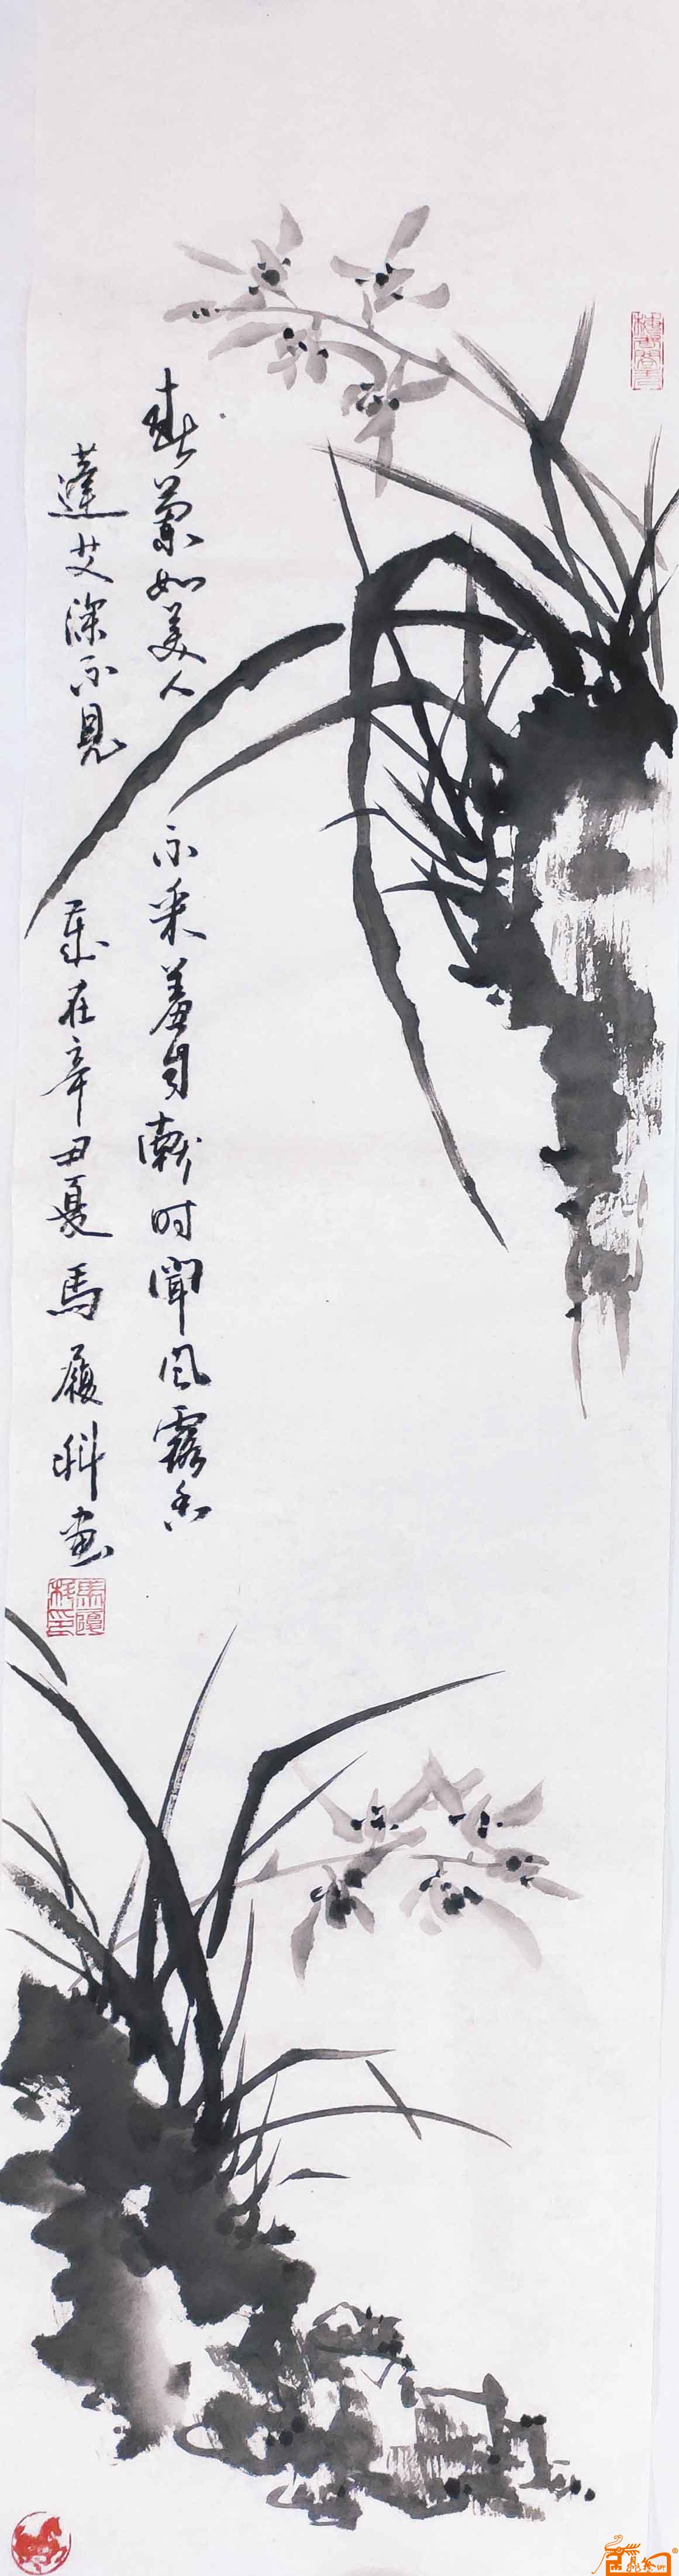 春兰如美人不采羞自献时闻风露香
蓬艾深不见岁在辛丑夏马履科画
马履科印